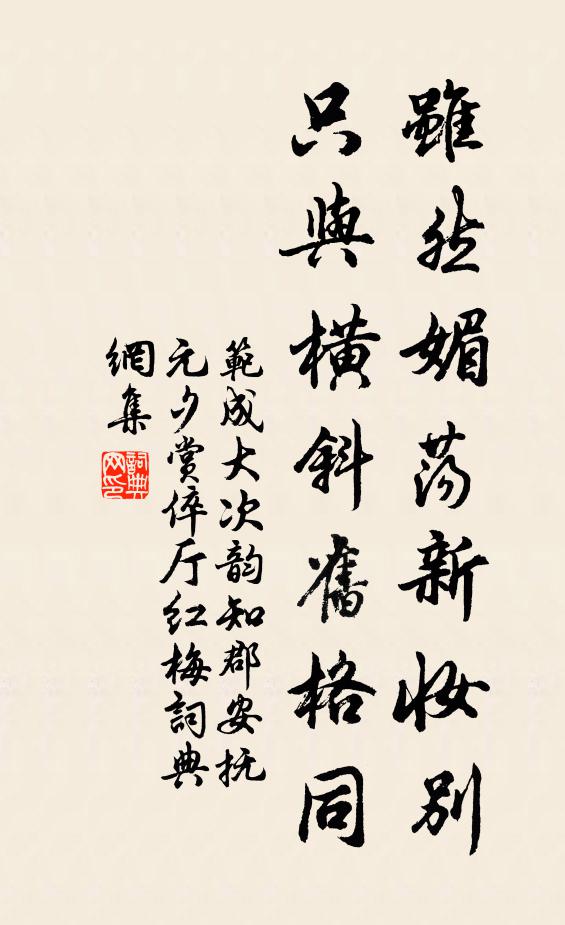 雖然媚蕩新妝別
只與橫斜舊格同
範成大次韵知郡安抚
元夕賞倅厅红梅詞典
網集
詞典网印